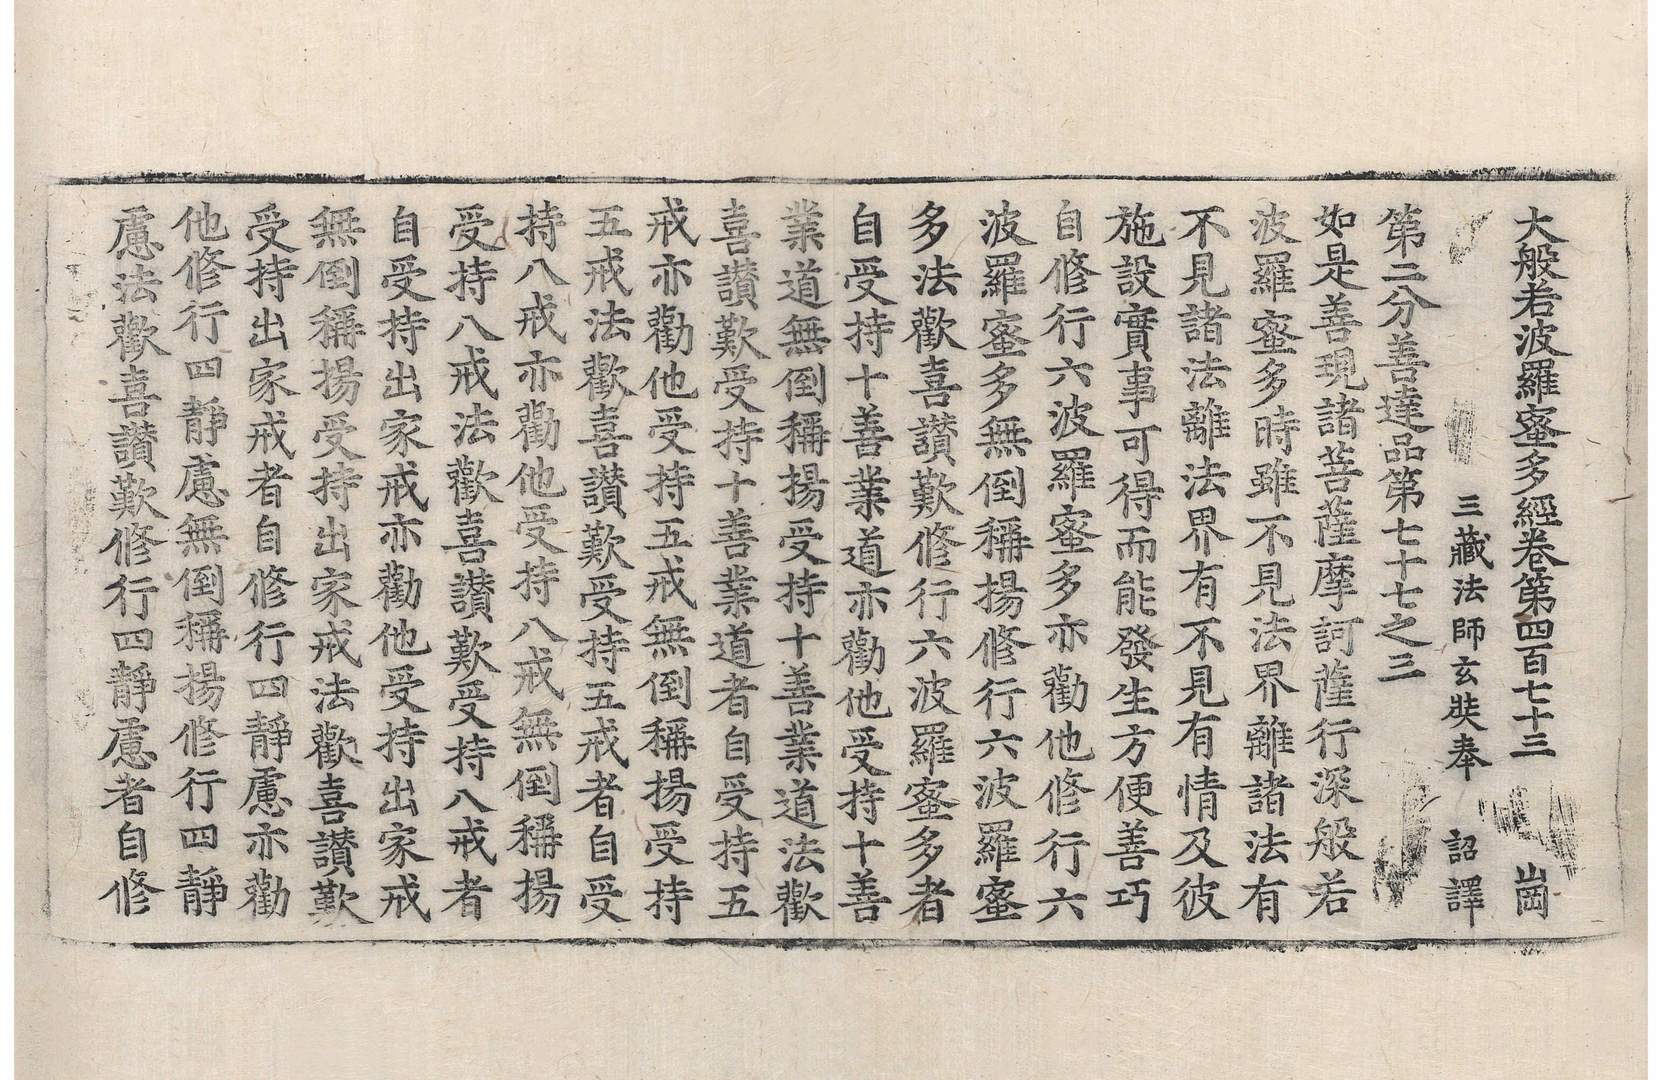 大般若波羅蜜多經卷第四百七十三 崗
三藏法師玄奘奉 詔譯
第二分善達品第七十七之三
如是善現諸菩薩摩訶薩行深般若
波羅蜜多時雖不見法界離諸法有
不見諸法離法界有不見有情及彼
施設實事可得而能發生方便善巧
自修行六波羅蜜多亦勸他修行六
波羅蜜多無倒稱揚修行六波羅蜜
多法歡喜讃歎修行六波羅蜜多者
自受持十善業道亦勸他受持十善
業道無倒稱揚受持十善業道法歡
喜讃歎受持十善業道者自受持五
戒亦勸他受持五戒無倒稱揚受持
五戒法歡喜讃歎受持五戒者自受
持八戒亦勸他受持八戒無倒稱揚
受持八戒法歡喜讃歎受持八戒者
自受持出家戒亦勸他受持出家戒
無倒稱揚受持出家戒法歡喜讃歎
受持出家戒者自修行四靜慮亦勸
他修行四靜慮無倒稱揚修行四靜
慮法歡喜讃歎修行四靜慮者自修